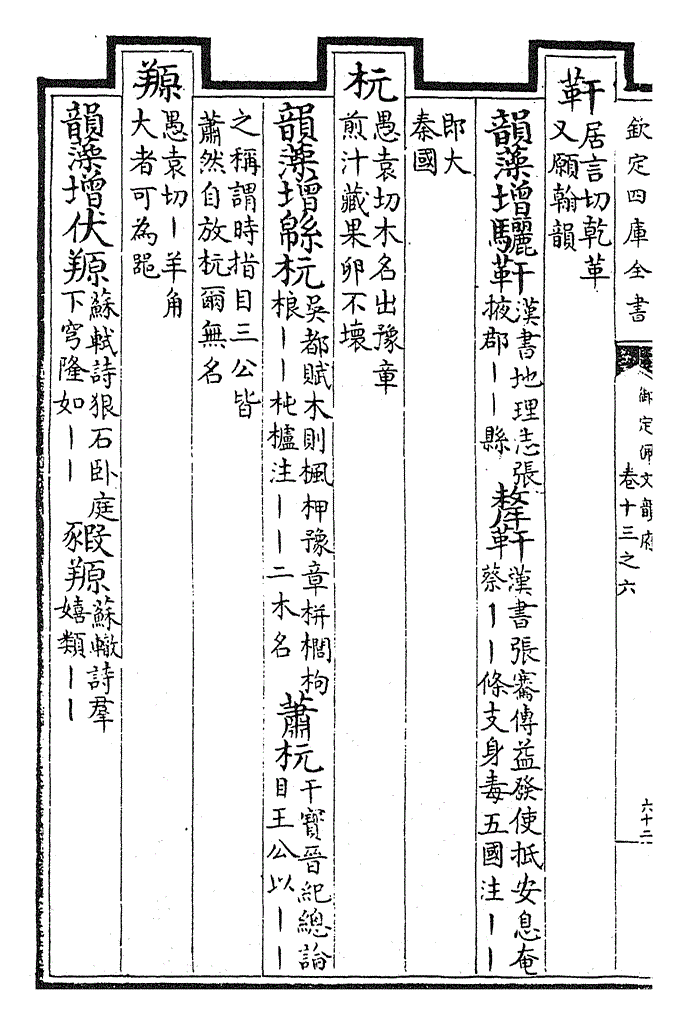 欽定四庫全書
御定佩文韻府
卷十三之六
六十二
靬
居言切乾革
又願翰韻
韻藻增驪靬
漢書地理志張
掖郡丨丨縣
犛靬
漢書張騫傳益發使抵安息奄
蔡丨丨條支身毒五國注丨丨
即大
秦國
杬
愚袁切木名出豫章
煎汁藏果卵不壞
韻藻增緜杬
吳都賦木則楓柙豫章栟櫚枸
桹丨丨杶櫨注丨丨二木名
蕭杬
干寶晉紀總論
目王公以丨丨
之稱謂時指目三公皆
蕭然自放杬爾無名
羱
愚袁切丨羊角
大者可為噐
韻藻增伏羱
蘇軾詩狠石卧庭
下穹隆如丨丨
豭羱
蘇轍詩羣
嬉類丨丨